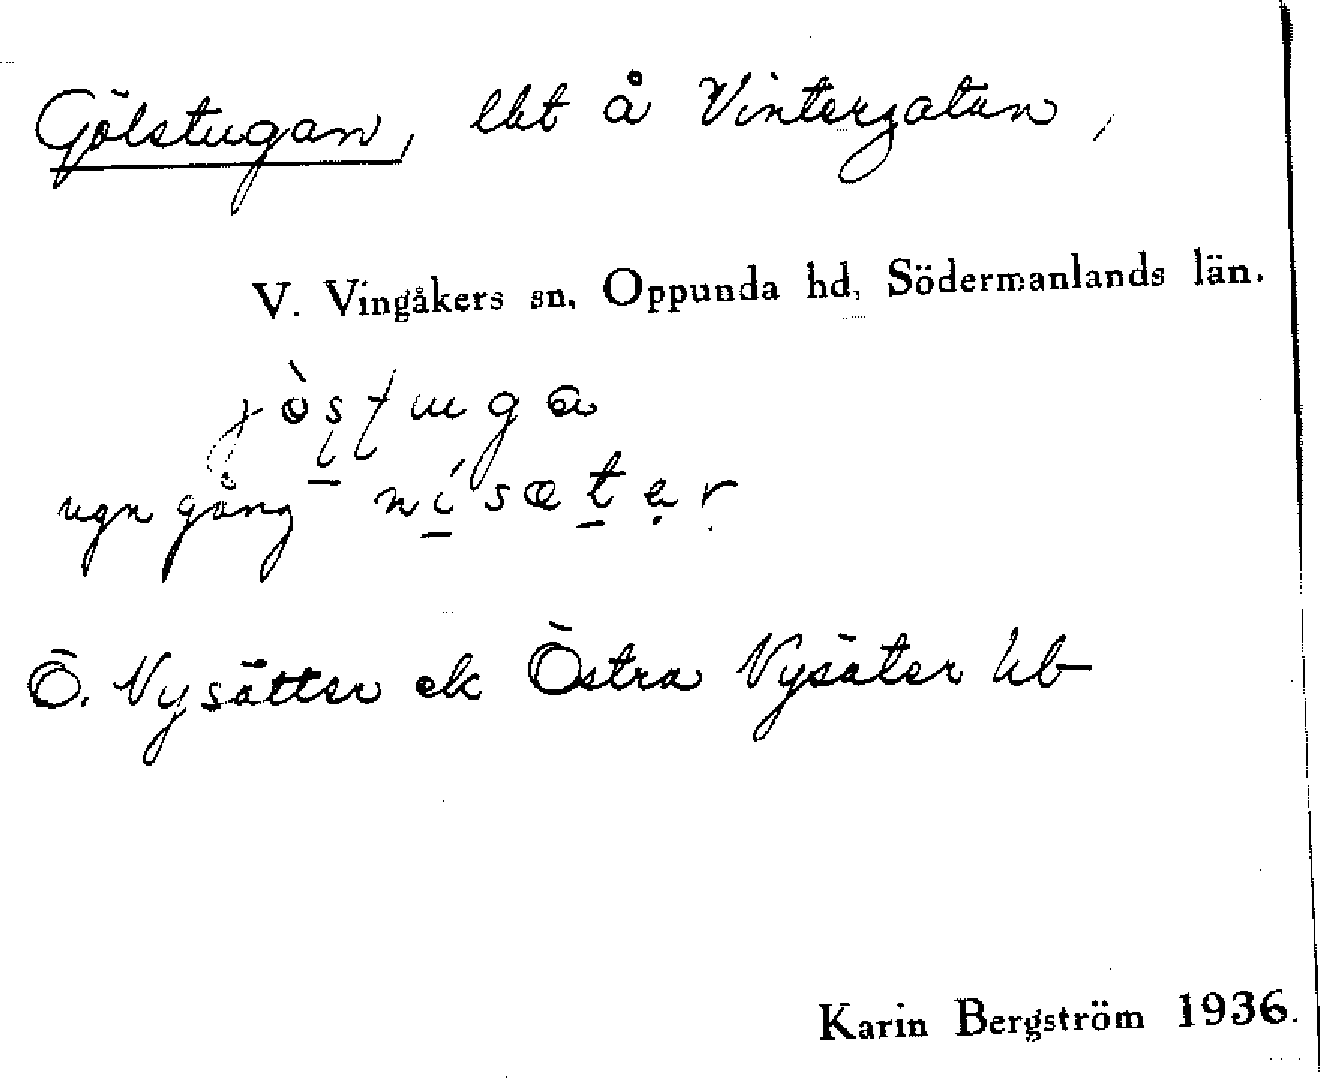 Gölstugan, lht å Vintergatan,
V. Vingåkers sn, Oppunda hd, Södermanlands län.
ugn gång
Ö. Nysätter ek Östra Nysäter hb
Karin Bergström 1936.